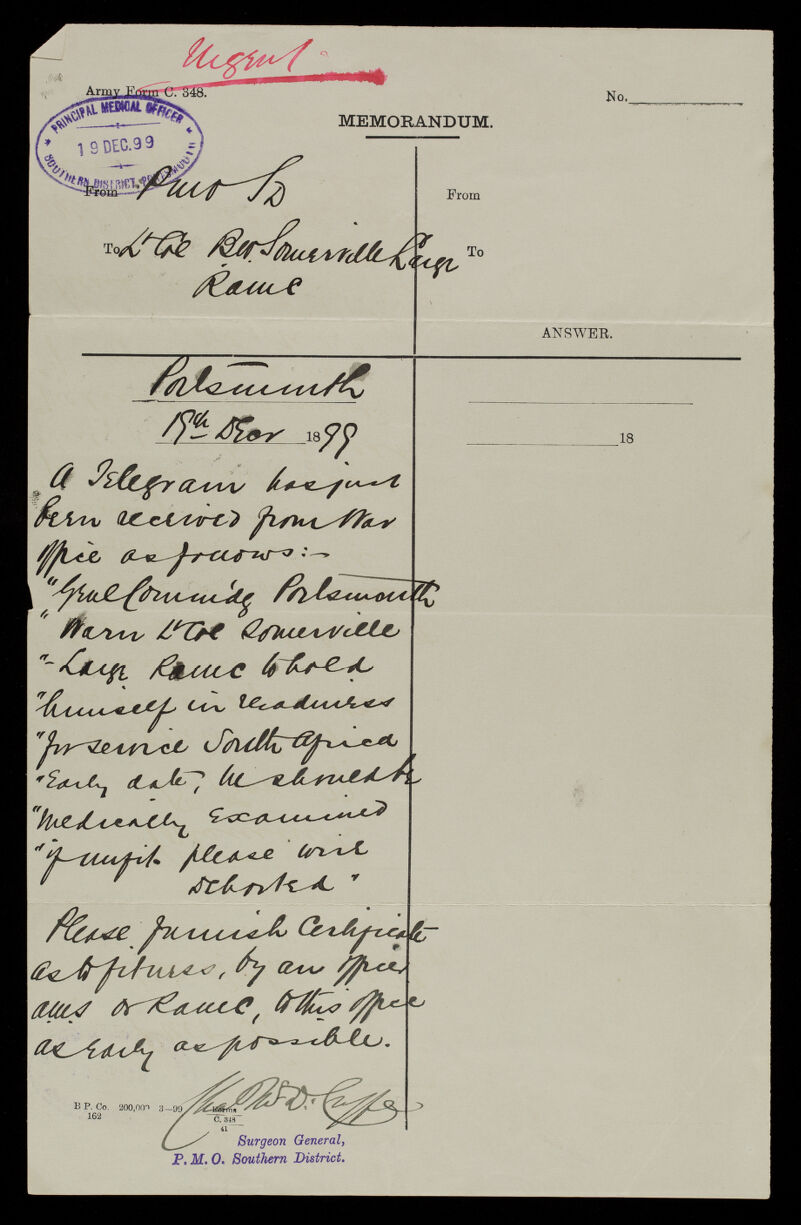 Urgent
Army Form C. 348.
No.
MEMORANDUM.
PRINCIPAL MEDICAL OFFICER
19 DEC. 99
SOUTHERN DISTRICT, PORTSMOUTH
From PMO SD
To Lt Col Somerville Large
RAMC
From
To
ANSWER.
Portsmouth
19th Decr 1899
18
A Telegram has just
been received from War
Office as follows:-
"Genl Commdg Portsmouth
"Warn Lt Col Somerville
"-Large RAMC to hold
"himself in readiness
"for service South Africa
"Early date, he should be
"Medically Examined
"if unfit please wire
"
Please furnish Certificate
as to fitness, by an officer
AMS or RAMC, to this office
as early as possible.
B P. Co. 200,000 3-99
162
Forms
C. 348
41
Surgeon General,
P. M. O. Southern District.